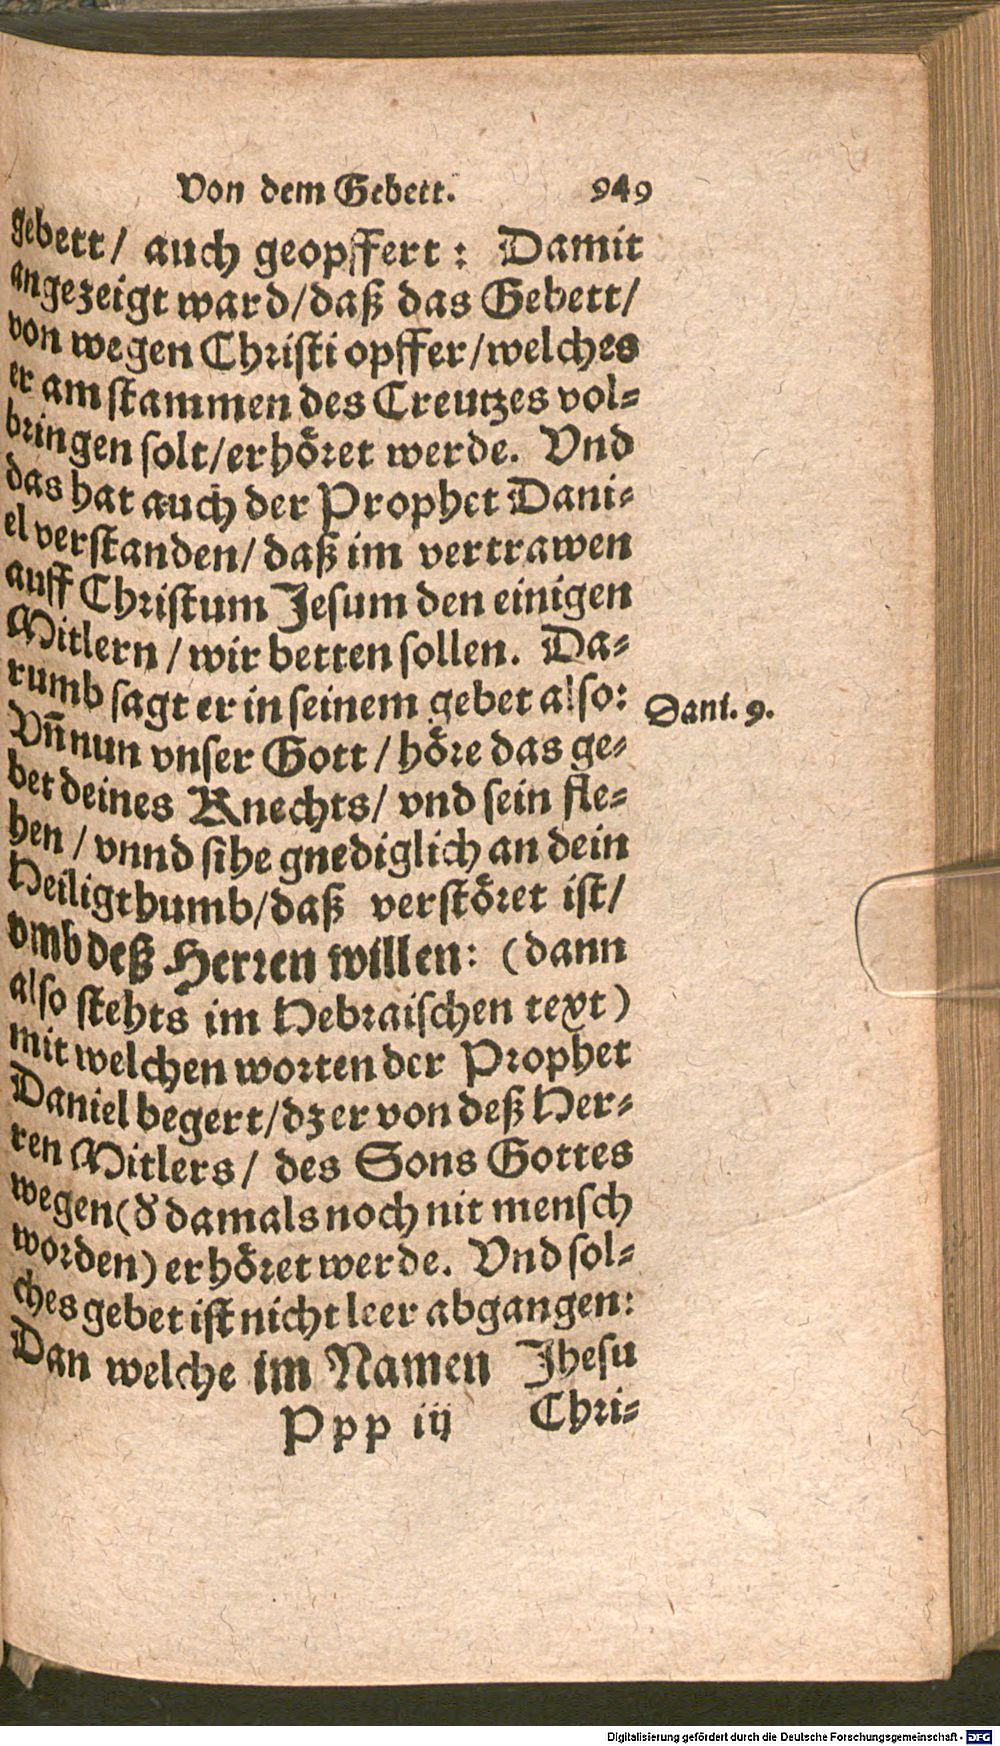 Von dem Gebett. 949
gebett/ auch geopffert: Damit
angezeigt ward/daß das Gebett/
von wegen Christi opffer/welches
er am stammen des Creutzes vol-
bringen solt/erhöret werde. Vnd
das hat auch der Prophet Dani-
el verstanden/daß im vertrawen
auff Christum Jesum den einigen
Mitlern/wir betten sollen. Da-
rumb sagt er in seinem gebet also:
Dani. 9.
Vñ nun vnser Gott/höre das ge-
bet deines Knechts/ vnd sein fle-
hen/vnnd sihe gnediglich an dein
Heiligthumb/daß verstöret ist/
vmb deß Herren willen: (dann
also stehts im Hebraischen text)
mit welchen worten der Prophet
Daniel begert/dz er von deß Her-
ren Mitlers/ des Sons Gottes
wegen (d̕ damals noch nit mensch
worden) erhöret werde. Vnd sol-
ches gebet ist nicht leer abgangen:
Dan welche im Namen Jhesu
Ppp iij Chri-
Digitalisierung gefördert durch die Deutsche Forschungsgemeinschaft - DFG